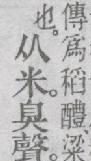 傳爲稻醴粱
也。从米。臭聲。